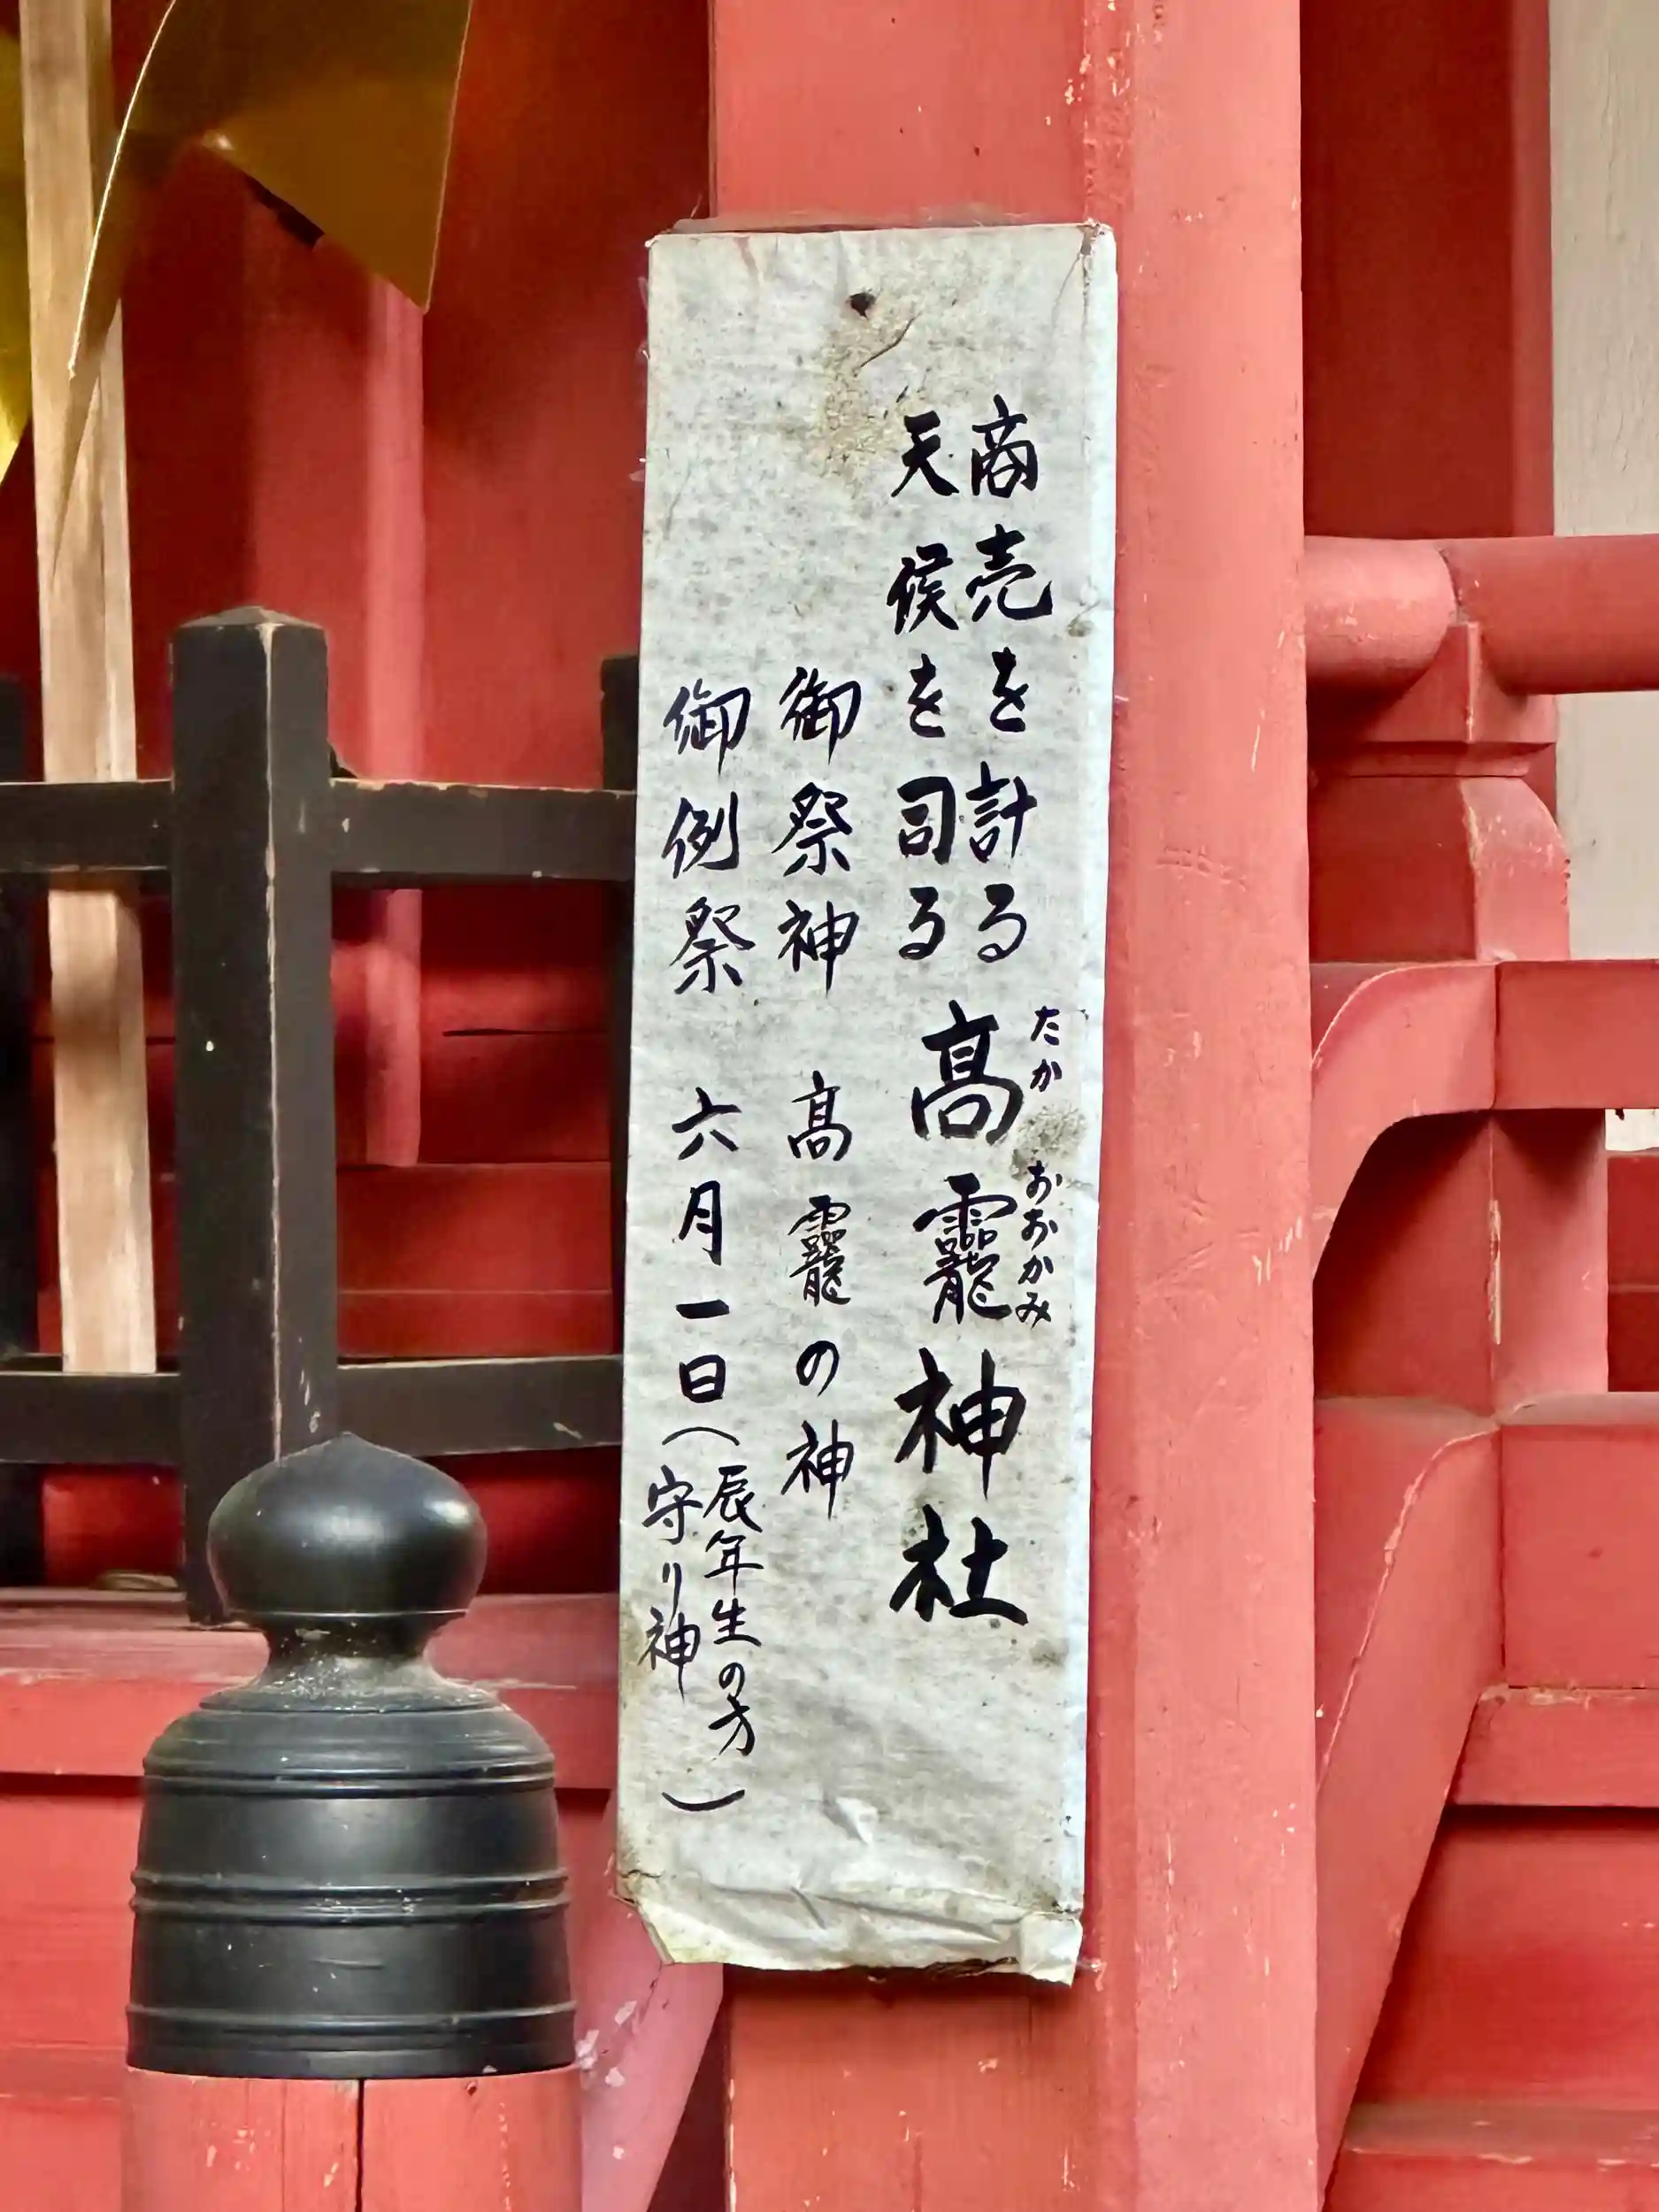 商売を計る
天候を司る
髙龗神社
たか おおかみ
御祭神 髙龗の神
御例祭 六月一日(辰年生の方
守り神)